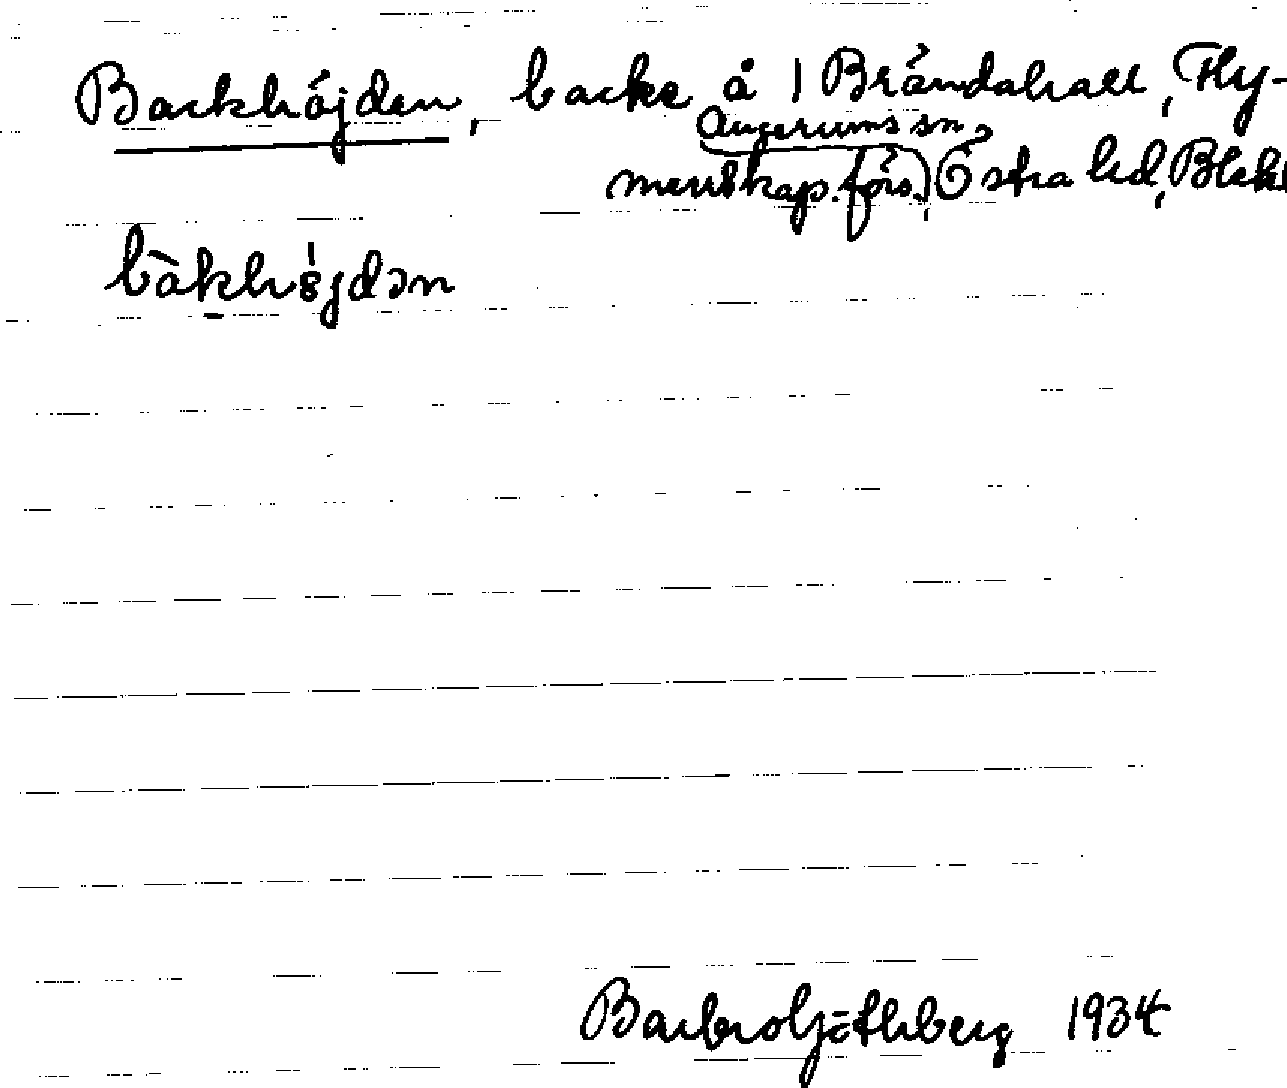 Backhöjden, backe å 1 Brändahall, Fly-
Augerums sn,
menskap. förs., Östra hd, Blek
bàkhø̀jdən
Barbro Göthberg 1934